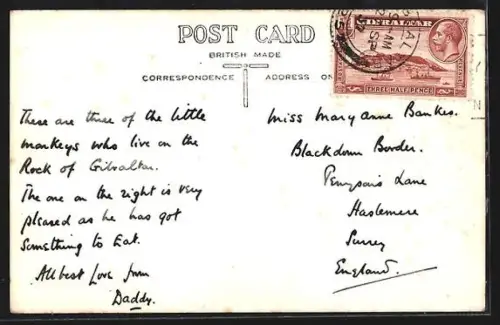 POST CARD
BRITISH MADE
CORRESPONDENCE
ADDRESS ON
GIBRALTAR
THREE HALF PENCE
AM
SP
There are three of the little
monkeys who live on the
Rock of Gibraltar.
The one on the right is very
pleased as he has got
something to Eat.
All best Love from
Daddy.
Miss Mary Anne Bankes.
Blackdown Border.
Tennyson's Lane
Haslemere
Surrey
England.